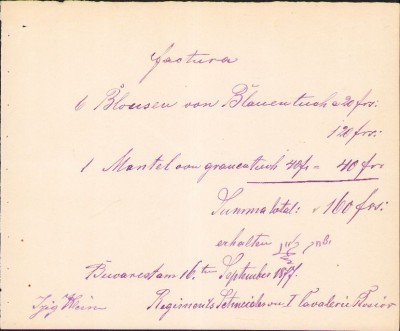 factura
6 Blousen von Blauentuch a 20 frs:
120 frs:
1 Mantel von grauentuch 40 fr = 40 frs
Summa total: 160 frs:
erhalten
Bucarest am 16.ten September 1877.
Regiments Schneider von I Cavalerie